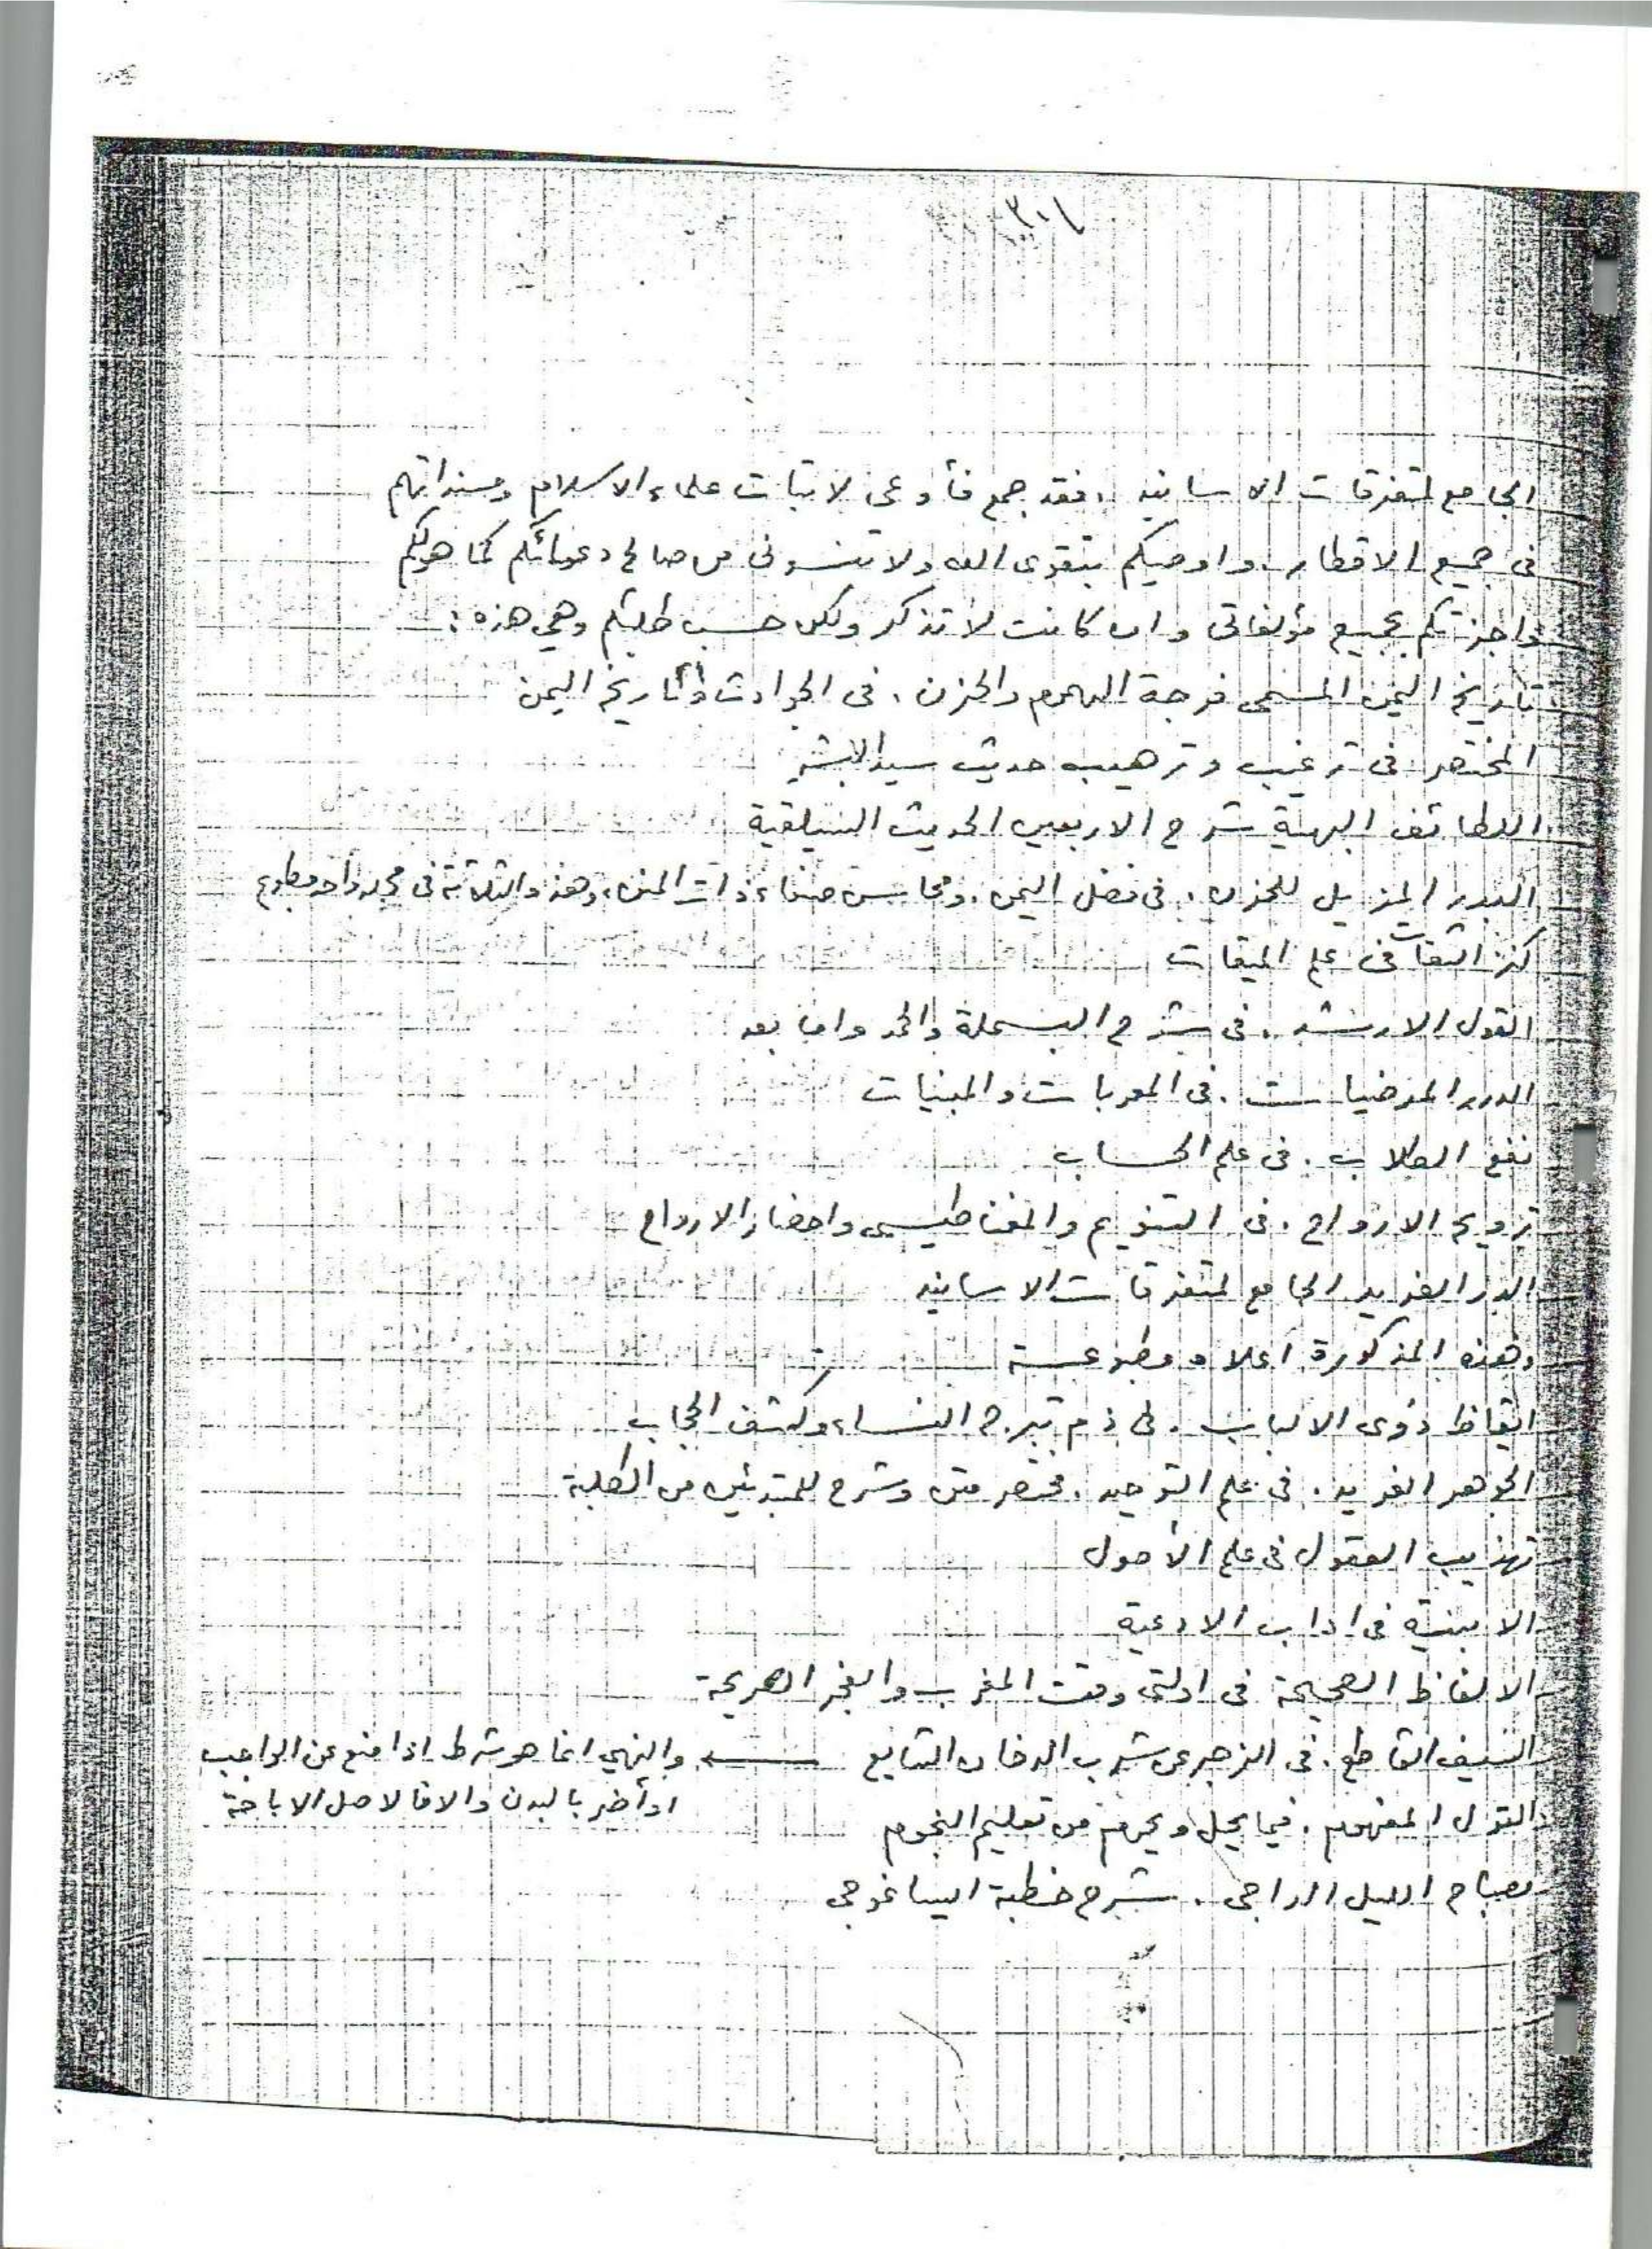 الجامع لمتفرقات الاسانيد . فقد جمع فأوعى لاثبات علماء الاسلام ومسنداتهم
فى جميع الاقطار . واوصيكم بتقوى الله ولا تنسونى من صالح دعواتكم كما هو لكم
واجزتكم بجميع مؤلفاتى وان كانت لا تذكر ولكن حسب طلبتكم وهي هذه :
تاريخ اليمن المسمى فرجة الهموم والحزن . فى الحوادث وتاريخ اليمن
المختصر فى ترغيب وترهيب حديث سيد البشر
اللطائف البهية شرح الاربعين الحديث السيلقية
البدر المزيل للحزن . فى فضل اليمن . ومحاسن صنعاء ذات المنن ، وهذه الثلاثة فى مجلد واحد مطبوع
كنز الثقات فى علم الميقات
القول الارشد . فى شرح البسملة والحمد واما بعد
الدرر المرضيات . فى المعربات والمبنيات
نفع الطلاب . فى علم الحساب
ترويح الارواح . فى التنويم والمغناطيسى واحضار الارواح
الدر الفريد الجامع لمتفرقات الاسانيد
وهذه المذكورة اعلاه مطبوعة
ايقاظ ذوى الالباب . فى ذم تبرج النساء وكشف الحجاب
الجوهر الفريد . فى علم التوحيد . مختصر متن وشرح للمبتدئين من الطلبة
تهذيب العقول فى علم الأصول
الابنية فى اداب الادعية
الالفاظ الصحيحة فى ادلتى وقت المغرب والفجر الصريحة
السيف القاطع . فى الزجر عن شرب الدخان الشايع ← والنهي انما هو شرط اذا منع عن الواجب
او أضر بالبدن والا فالاصل الاباحة
القول المفهوم . فيما يحل ويحرم من تعليم النجوم
مصباح الليل الداجى . شرح خطبة ايساغوجى